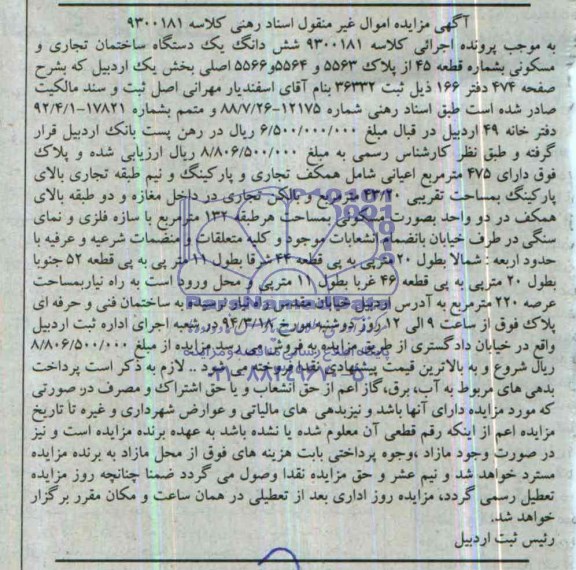 آگهی مزایده اموال غیر منقول اسناد رهنی کلاسه ۹۳۰۰۱۸۱
به موجب پرونده اجرائی کلاسه ۹۳۰۰۱۸۱ شش دانگ یک دستگاه ساختمان تجاری و
مسکونی بشماره قطعه ۴۵ از پلاک ۵۵۶۳ و ۵۵۶۴و۵۵۶۶ اصلی بخش یک اردبیل که بشرح
صفحه ۴۷۴ دفتر ۱۶۶ ذیل ثبت ۳۶۳۳۲ بنام آقای اسفندیار مهرانی اصل ثبت و سند مالکیت
صادر شده است طبق اسناد رهنی شماره ۱۲۱۷۵-۸۸/۷/۲۶ و متمم بشماره ۱۷۸۲۱-۹۲/۴/۱
دفتر خانه ۴۹ اردبیل در قبال مبلغ ۶/۵۰۰/۰۰۰/۰۰۰ ریال در رهن پست بانک اردبیل قرار
گرفته و طبق نظر کارشناس رسمی به مبلغ ۸/۸۰۶/۵۰۰/۰۰۰ ریال ارزیابی شده و پلاک
فوق دارای ۴۷۵ مترمربع اعیانی شامل همکف تجاری و پارکینگ و نیم طبقه تجاری بالای
پارکینگ بمساحت تقریبی مترمربع و بالکن تجاری در داخل مغازه و دو طبقه بالای
همکف در دو واحد بصورت مسکونی بمساحت هرطبقه ۱۳۲ مترمربع با سازه فلزی و نمای
سنگی در طرف خیابان بانضمام انشعابات موجود و کلیه متعلقات و منضمات شرعیه و عرفیه با
حدود اربعه : شمالا بطول ۲۰ متری به پی قطعه ۴۴ شرقا بطول ۱۱ متر پی به پی قطعه ۵۲ جنوبا
بطول ۲۰ متر پی به پی قطعه ۴۶ غربا بطول ۱۱ مترپی و محل ورود است به راه نیاربمساحت
عرصه ۲۲۰ مترمربع به آدرس اردبیل خیابان مقدس راه نیار نرسیده به ساختمان فنی و حرفه ای
پلاک فوق از ساعت ۹ الی ۱۲ روز دوشنبه مورخ ۹۴/۳/۱۸ در شعبه اجرای اداره ثبت اردبیل
واقع در خیابان دادگستری از طریق مزایده به فروش می رسد مزایده از مبلغ ۸/۸۰۶/۵۰۰/۰۰۰
ریال شروع و به بالاترین قیمت پیشنهادی نقدا فروخته می شود .. لازم به ذکر است پرداخت
بدهی های مربوط به آب، برق،گاز اعم از حق انشعاب و یا حق اشتراک و مصرف در صورتی
که مورد مزایده دارای آنها باشد و نیزبدهی های مالیاتی و عوارض شهرداری و غیره تا تاریخ
مزایده اعم از اینکه رقم قطعی آن معلوم شده یا نشده باشد به عهده برنده مزایده است و نیز
در صورت وجود مازاد ،وجوه پرداختی بابت هزینه های فوق از محل مازاد به برنده مزایده
مسترد خواهد شد و نیم عشر و حق مزایده نقدا وصول می گردد ضمنا چنانچه روز مزایده
تعطیل رسمی گردد، مزایده روز اداری بعد از تعطیلی در همان ساعت و مکان مقرر برگزار
خواهد شد.
رئیس ثبت اردبیل